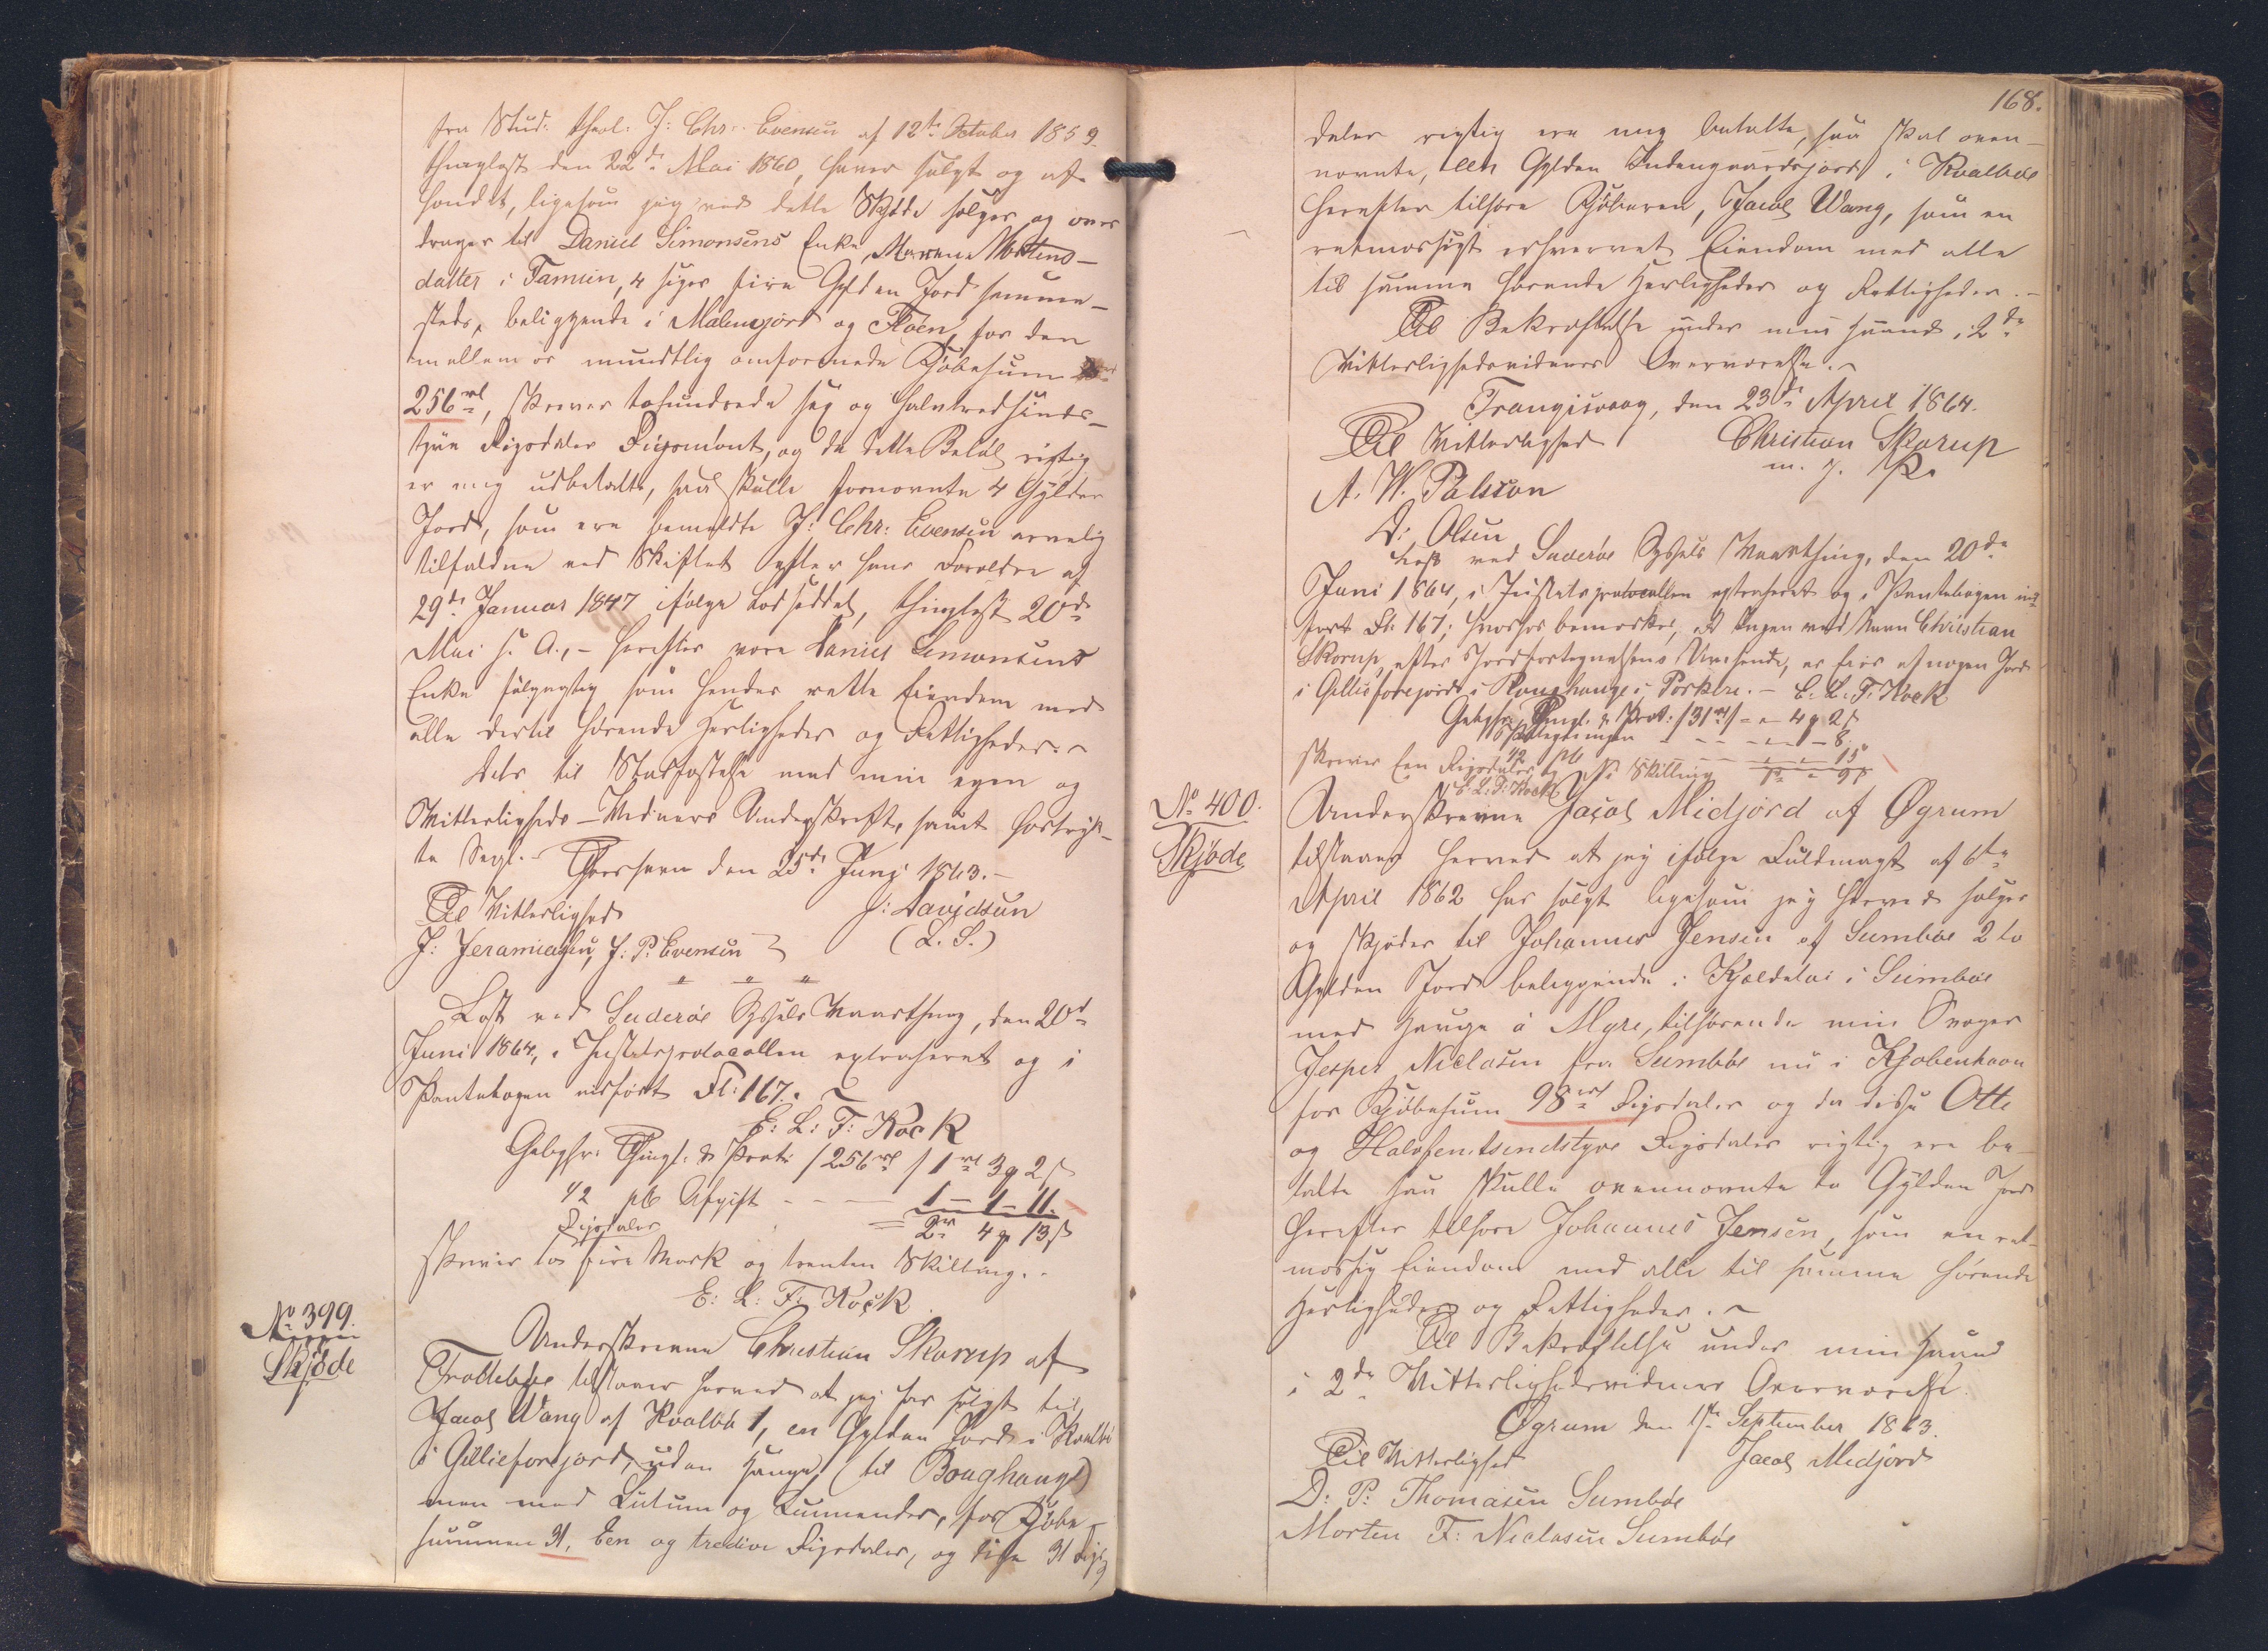 fra Stud: theol: J: Chr: Evensen af 12te October 1859.
thinglæst den 22de Mai 1860, haver solgt og af-
hændet, ligesom jeg ved dette Skjöde sælger og over-
drager til Daniel Simonsens Enke, Marene Mortens-
datter i Famien, 4 siger fire Gylden Jord samme-
steds, beliggende i Malensjørd og Floen, for den
mellem os mundtlig omforenede Kjöbesum
256 rd, skriver tohundrede sex og halvtredsinds-
tyve Rigsdaler Rigsmønt, og da dette Beløb rigtig
er mig udbetalt, saa skulle fornævnte 4 Gylden
Jord, som ere bemeldte J: Chr: Evensen arvelig
tilfaldne ved Skiftet efter hans Forældre af
29de Januar 1847 ifølge Lodseddel, thinglæst 20de
Mai s. A., - herefter være Daniel Simonsens
Enke følgagtig som hendes rette Eiendom med
alle dertil hørende Herligheder og Rettigheder.
Dets til Stadfæstelse med min egen og
Vitterligheds-Vidners Underskrift, samt hostryk-
te Segl. Thorshavn den 25de Juni 1863.
Til Vitterlighed J: Davidsen
J: Jeramiasen, J: P: Evensen (L. S.)
Læst ved Suderöe Syssels Vaarthing, den 20de
Juni 1864, i Justitsprotocollen extraheret og i
Pantebogen indført Fl: 167.
E: L: F: Kock
Gebyhr: Thingl. & Prot: /256 rd/ 1 rd 3 ₰ 2 ß
1/2 pCt Afgift - - - 1 - 1 - 11.
= 2 rd 4 ₰ 13 ß
Rigsdaler
skriver to fire Mark og tretten Skilling.
E: L: F: Kock
No 399.
Skjöde
Underskrevne Christian Skorup af
tilstaaer herved at jeg har solgt til
Jacob Wang af Kvalbö 1, en Gylden Jord i Kvalbö
i Gillieforejord, uden Hauge, (til Boughauge)
men med Lutum og Lunnender, for Kjöbe-
summen 31, Een og tredive Rigsdaler, og disse 31 Rigs-
168.
daler rigtig ere mig betalte, saa skal oven-
nævnte, een Gylden Indengaardsjord i Kvalböe
herefter tilhøre Kjöberen, Jacob Wang, som en
retmæssigt erhvervet Eiendom med alle
til samme hørende Herligheder og Rettigheder.-
Til Bekræftelse under min Haand i 2de
Vitterlighedsvidners Overværelse.
Trangisvaag, den 23de April 1864.
Til Vitterlighed Christian Skorup
m. p.
A. W. Palsson
D: Olsen
Læst ved Suderöe Syssels Vaarthing, den 20de
Juni 1864, i Justitsprotocollen extraheret og i Pantebogen ind-
ført Fl: 167; hvorhos bemærkes, at Ingen ved Navn Christian
Skorup, efter Jordfortegnelsens Udvisende, er Eier af nogen Jord
i Gillieforejord i Boughauge i Porkere. - E. L. F. Kock
Gebyhr Thingl. & Prot: /31 rd/ - " - 4 ₰ 2 ß
Paategningen - - - " - " - 8.
1/2 pCt - - - " - " - 15
skriver Een Rigsdaler og Ni Skilling 1 rd - " - 9 ß
E. L. F. Kock
No 400.
Skjöde
Underskrevne Jacob Midjord af Øgrum
tilstaaer herved at jeg ifølge Fuldmagt af 6te
April 1862 har solgt ligesom jeg herved sælger
og skjøder til Johannes Jensen af Sumböe 2 to
Gylden Jord beliggende i Kjeldalai i Sumböe
med Hauge á Myre, tilhørende min Svoger
Jesper Niclasen fra Sumböe nu i Kjøbenhavn
for Kjöbesum 98 rd Rigsdaler og da disse Otte
og Halvfemtsindstyve Rigsdaler rigtig ere be-
talte saa skulle ovennævnte to Gylden Jord
herefter tilhøre Johannes Jensen, som en ret-
mæssig Eiendom med alle til samme hørende
Herligheder og Rettigheder.
Til Bekræftelse under min Haand
i 2de Vitterlighedsvidners Overværelse.
Øgrum den 1ste September 1863.
Til Vitterlighed Jacob Midjord
D: P: Thomasen Sumböe
Morten F: Niclasen Sumböe